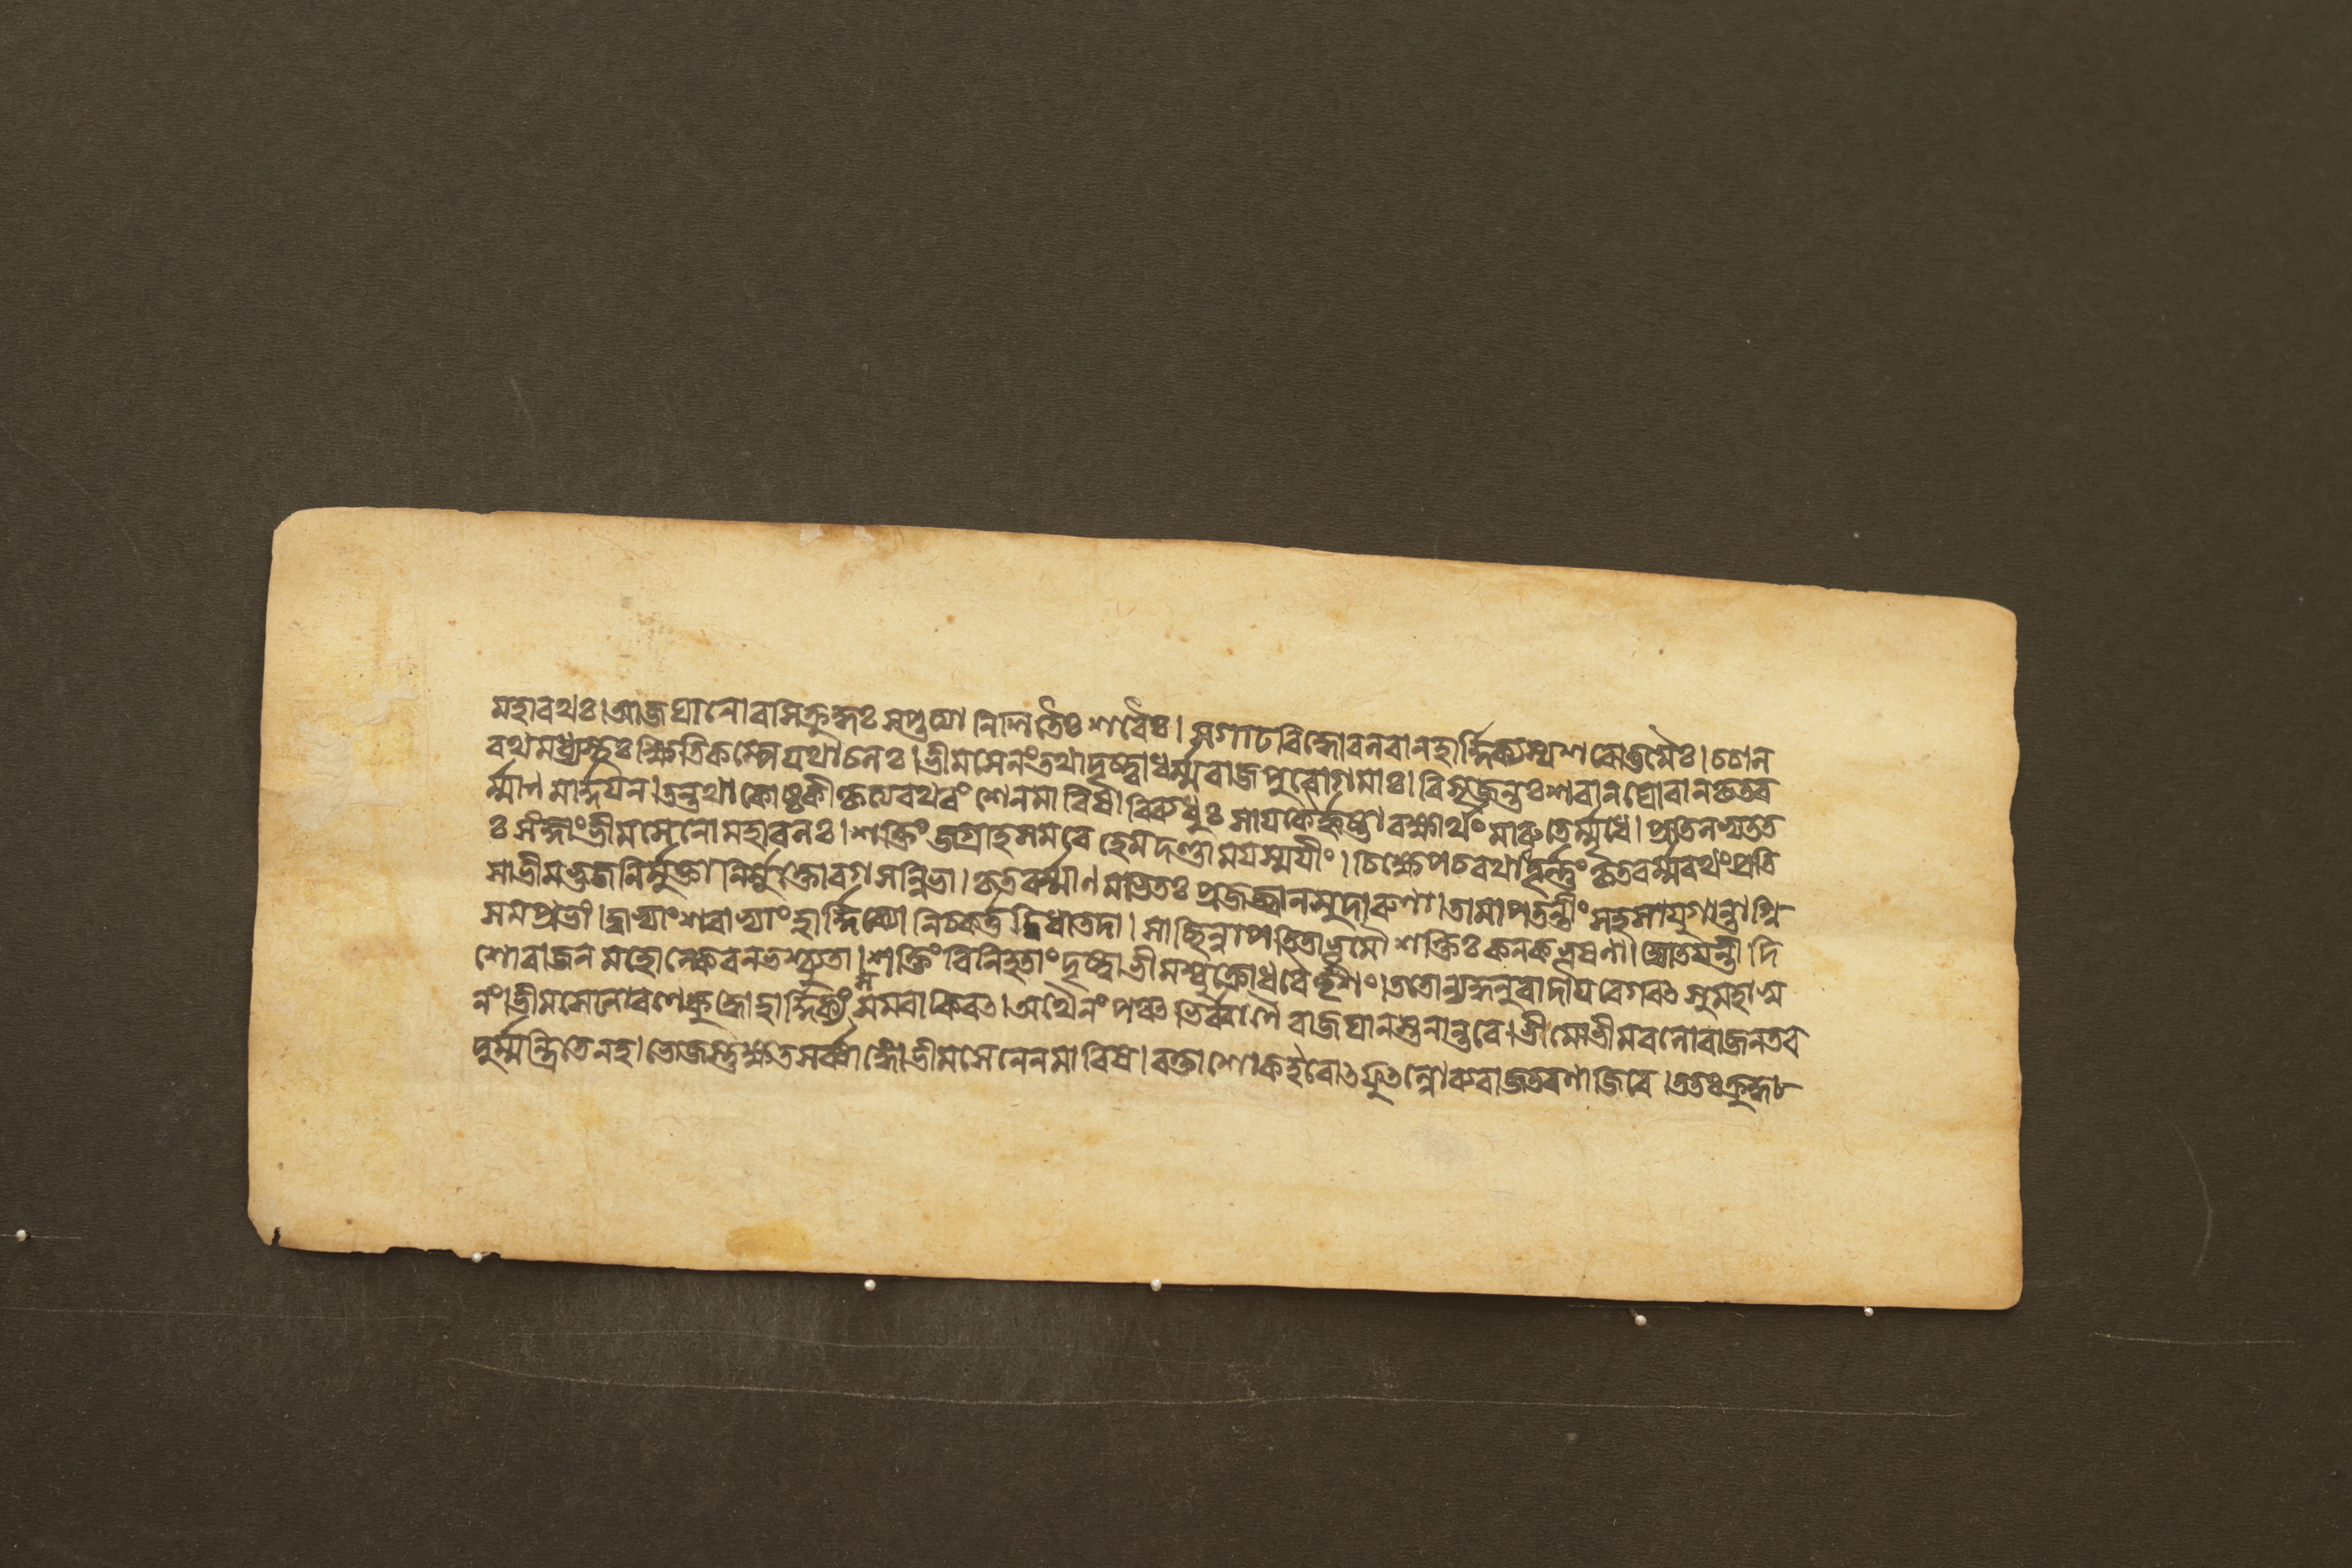 মহারথঃ।আজঘানোরসিক্রুদ্ধঃ সপ্তত্যা নিশিতৈঃ শরৈঃ। সগাঢবিদ্ধোবলবানহার্দ্দিক্যস্যশরোত্তমৈঃ।চচাল
রথমধ্যস্থঃ ক্ষিতিকম্পেযথাচলঃ।ভীমসেনংতথাদৃষ্ট্বাধর্ম্মরাজপুরোগমাঃ।বিসৃজন্তঃশরানঘোরানকৃতব
র্ম্মাণমার্দ্দয়ন।তন্তথাকোষ্ঠকীকৃত্যরথবংশেনমারিষ।বিব্যধুঃ সায়কৈর্হৃষ্টারক্ষার্থং মারুতের্ম্মৃধে। প্রতিলভ্যতত
ঃ সংজ্ঞাংভীমসেনোমহাবলঃ।শক্তিংজগ্রাহসমরে হেমদণ্ডাময়স্ময়ীং।চিক্ষেপচরথাত্তূর্ন্নংকৃতবর্ম্মরথংপ্রতি
সাভীমভুজনির্মুক্তানির্মুক্তোরগসন্নিভা।কৃতবর্ম্মাণমভিতঃ প্রজজ্বালসুদারুণা।তামাপতন্তীংসহসাযুগান্তাগ্নি
সমপ্রভাং।দ্বাভ্যাংশরাভ্যাংহার্দ্দিক্যো নিচকর্ত্তদ্বিধাতদা।সাছিন্নাপতিতাভূমৌ শক্তিঃকনকভূষণা।দ্যোতয়ন্তী দি
শোরাজনমহোল্কেবনভশ্চ্যুতা।শক্তিংবিনিহতাংদৃষ্ট্বাভীমশ্চুক্রোধবৈভৃশং।ততোন্যদ্ধনুরাদায়বেগবৎসুমহাস্ব
নং।ভীমসেনোরণেক্রুদ্ধোহার্দ্দিক্যংসমবাকিরৎ।অথৈনংপঞ্চভির্ব্বাণৈরাজঘানস্তনান্তরে।ভীমোভীমবলোরাজনতব
দুর্ম্মন্ত্রিতেনহ।ভোজস্তুক্ষতসর্ব্বাঙ্গোভীমসেনেনমারিষ।রক্তাশোকইবোৎফুল্লোব্যরাজতরণাজিরে।ততঃক্রুদ্ধ